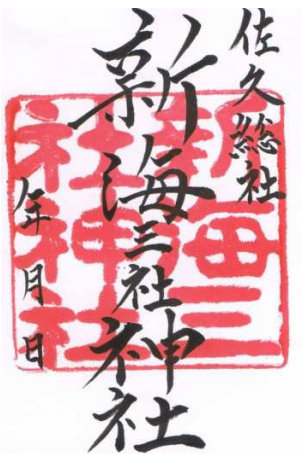 佐久総社
新海三社神社
年月日
新海三
社神社